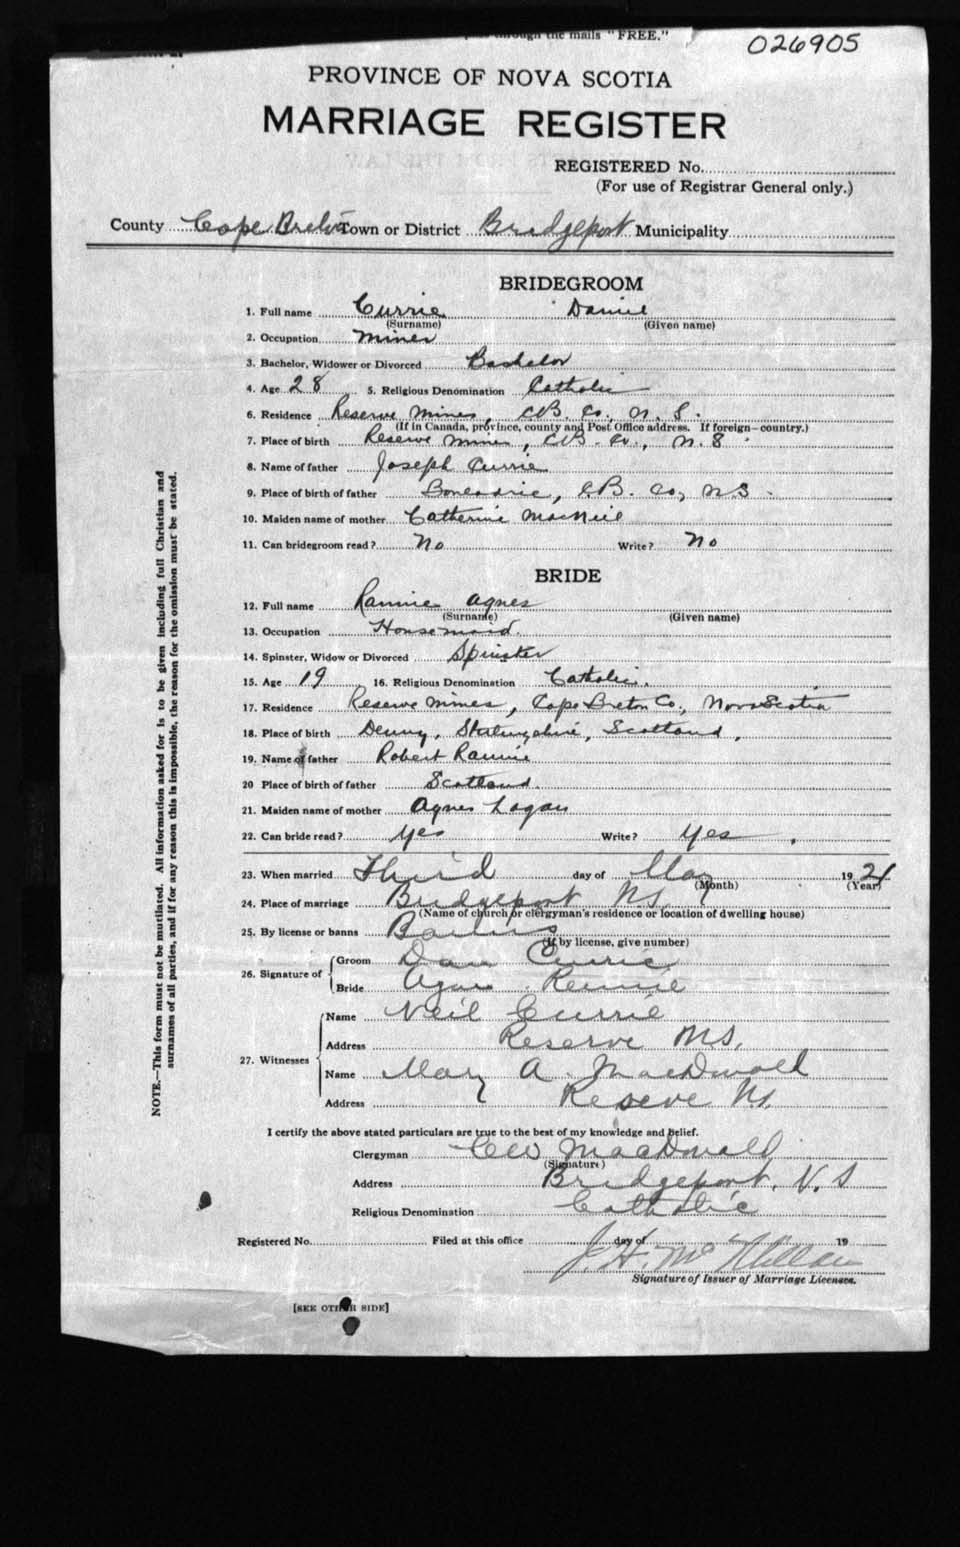 through the mails "FREE."
026905
PROVINCE OF NOVA SCOTIA
MARRIAGE REGISTER
REGISTERED No.
(For use of Registrar General only.)
County Cape Breton Town or District Bridgeport Municipality
BRIDEGROOM
1. Full name Currie Daniel
(Surname) (Given name)
2. Occupation Miner
3. Bachelor, Widower or Divorced Bachelor
4. Age 28 5. Religious Denomination Catholic
6. Residence Reserve Mines, C.B. Co. N. S.
(If in Canada, province, county and Post Office address. If foreign—country.)
7. Place of birth Reserve Mines, C.B. Co., N. S.
8. Name of father Joseph Currie
9. Place of birth of father C.B. Co, N.S.
10. Maiden name of mother Catherine MacNeil
11. Can bridegroom read? No Write? No
BRIDE
12. Full name Rannie Agnes
(Surname) (Given name)
13. Occupation Housemaid.
14. Spinster, Widow or Divorced Spinster
15. Age 19 16. Religious Denomination Catholic.
17. Residence Reserve Mines, Cape Breton Co., Nova Scotia
18. Place of birth Denny, Stirlingshire, Scotland.
19. Name of father Robert Rannie
20 Place of birth of father Scotland.
21. Maiden name of mother Agnes Logan
22. Can bride read? Yes Write? Yes.
23. When married Third day of May 19 21
(Month) (Year)
24. Place of marriage Bridgeport N.S.
(Name of church or clergyman's residence or location of dwelling house)
25. By license or banns Banns
(If by license, give number)
26. Signature of Groom Dan Currie
Bride Agnes Rennie
27. Witnesses Name Neil Currie
Address Reserve N.S.
Name Mary A. MacDonald
Address Reseve N.S.
I certify the above stated particulars are true to the best of my knowledge and belief.
Clergyman MacDonald
(Signature)
Address Bridgeport, N.S
Religious Denomination Catholic
Registered No. Filed at this office day of 19
J. H. McMillan
Signature of Issuer of Marriage Licenses.
[SEE OTHER SIDE]
NOTE.—This form must not be mutilated. All information asked for is to be given including full Christian and
surnames of all parties, and if for any reason this is impossible, the reason for the omission must be stated.